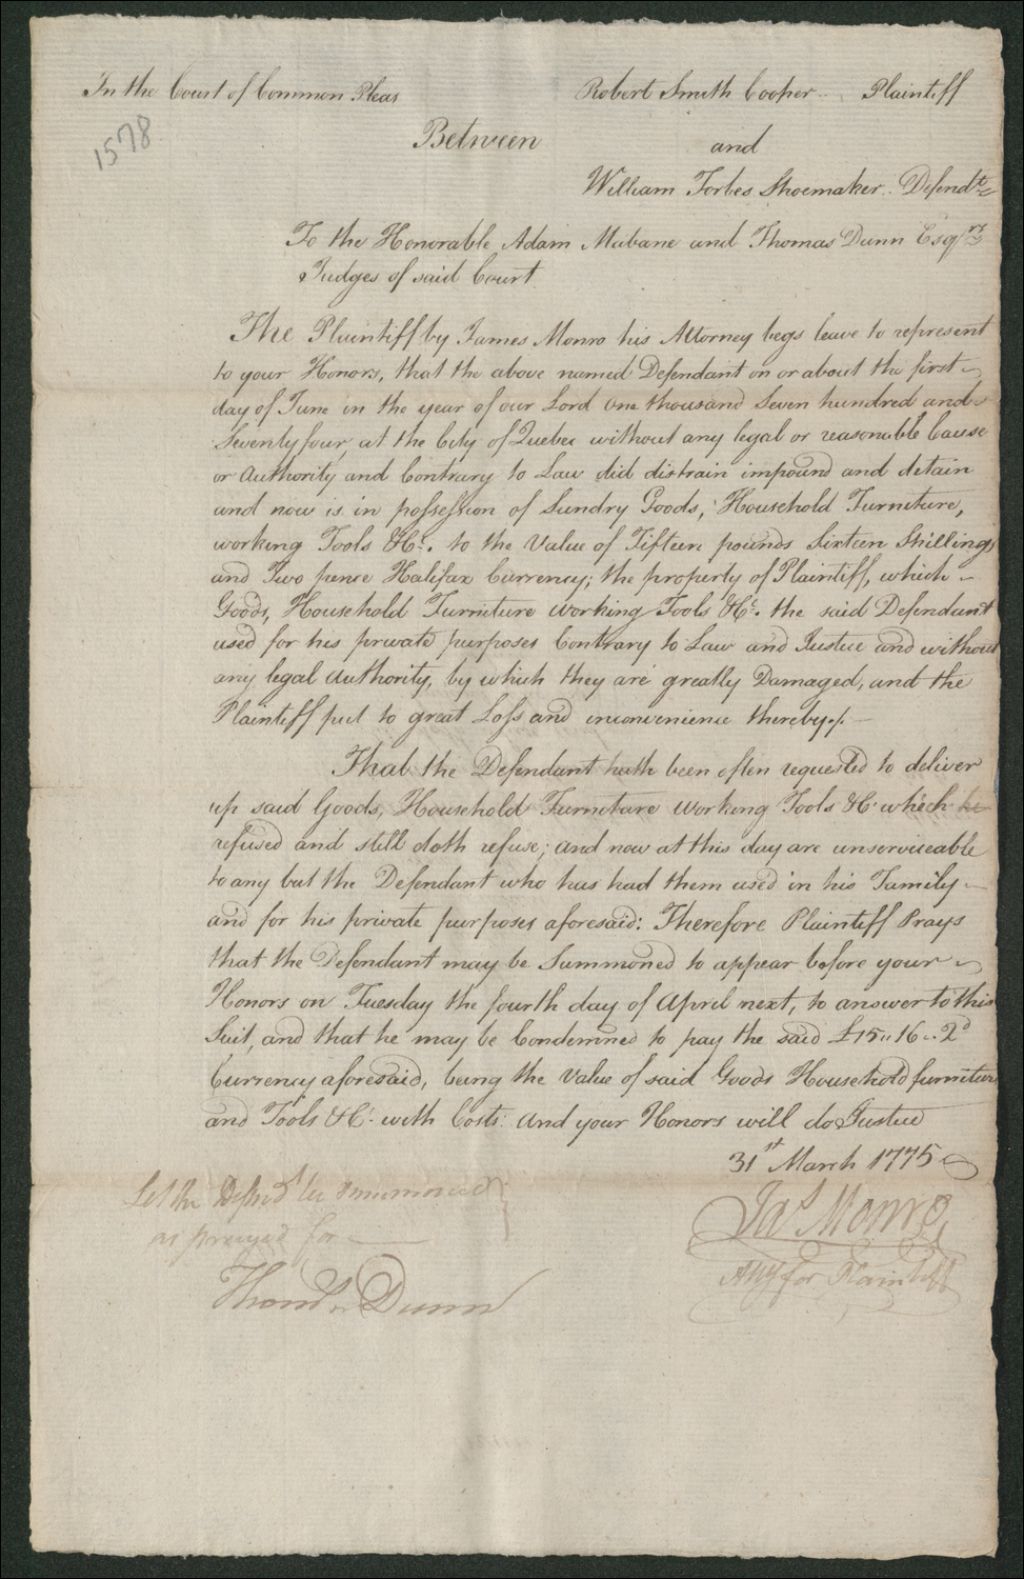 In the Court of Common Pleas
Robert Smith Cooper .. Plaintiff
1578
Between
and
William Forbes Shoemaker .. Defendt
To the Honorable Adam Mabane and Thomas Dunn Esqrs
Judges of said Court
The Plaintiff by James Monro his Attorney begs leave to represent
to your Honors, that the above named Defendant on or about the first
day of June in the year of our Lord one thousand Seven hundred and
Seventy four, at the City of Quebec without any legal or reasonable Cause
or Authority and Contrary to Law did distrain impound and detain
and now is in possession of Sundry Goods, Household Furniture,
working Tools &c. to the Value of Fifteen pounds Sixteen Shillings
and Two pence Halifax Currency; the property of Plaintiff, which
Goods, Household Furniture working Tools &c. the said Defendant
used for his private purposes Contrary to Law and Justice and without
any legal Authority, by which they are greatly Damaged, and the
Plaintiff put to great Loss and inconvenience thereby./.
That the Defendant hath been often requested to deliver
up said Goods, Household Furniture working Tools &c. which he
refused and still doth refuse; and now at this day are unserviceable
to any but the Defendant who has had them used in his Family
and for his private purposes aforesaid: Therefore Plaintiff Prays
that the Defendant may be Summoned to appear before your
Honors on Tuesday the fourth day of April next, to answer to this
Suit, and that he may be Condemned to pay the said £15..16..2d
Currency aforesaid, being the Value of said Goods Household furniture
and Tools &c. with Costs: And your Honors will do Justice
31st March 1775
Let the Defendt be summoned
as prayed for
Jas Monro
Atty for Plaintiff
Thomas Dunn